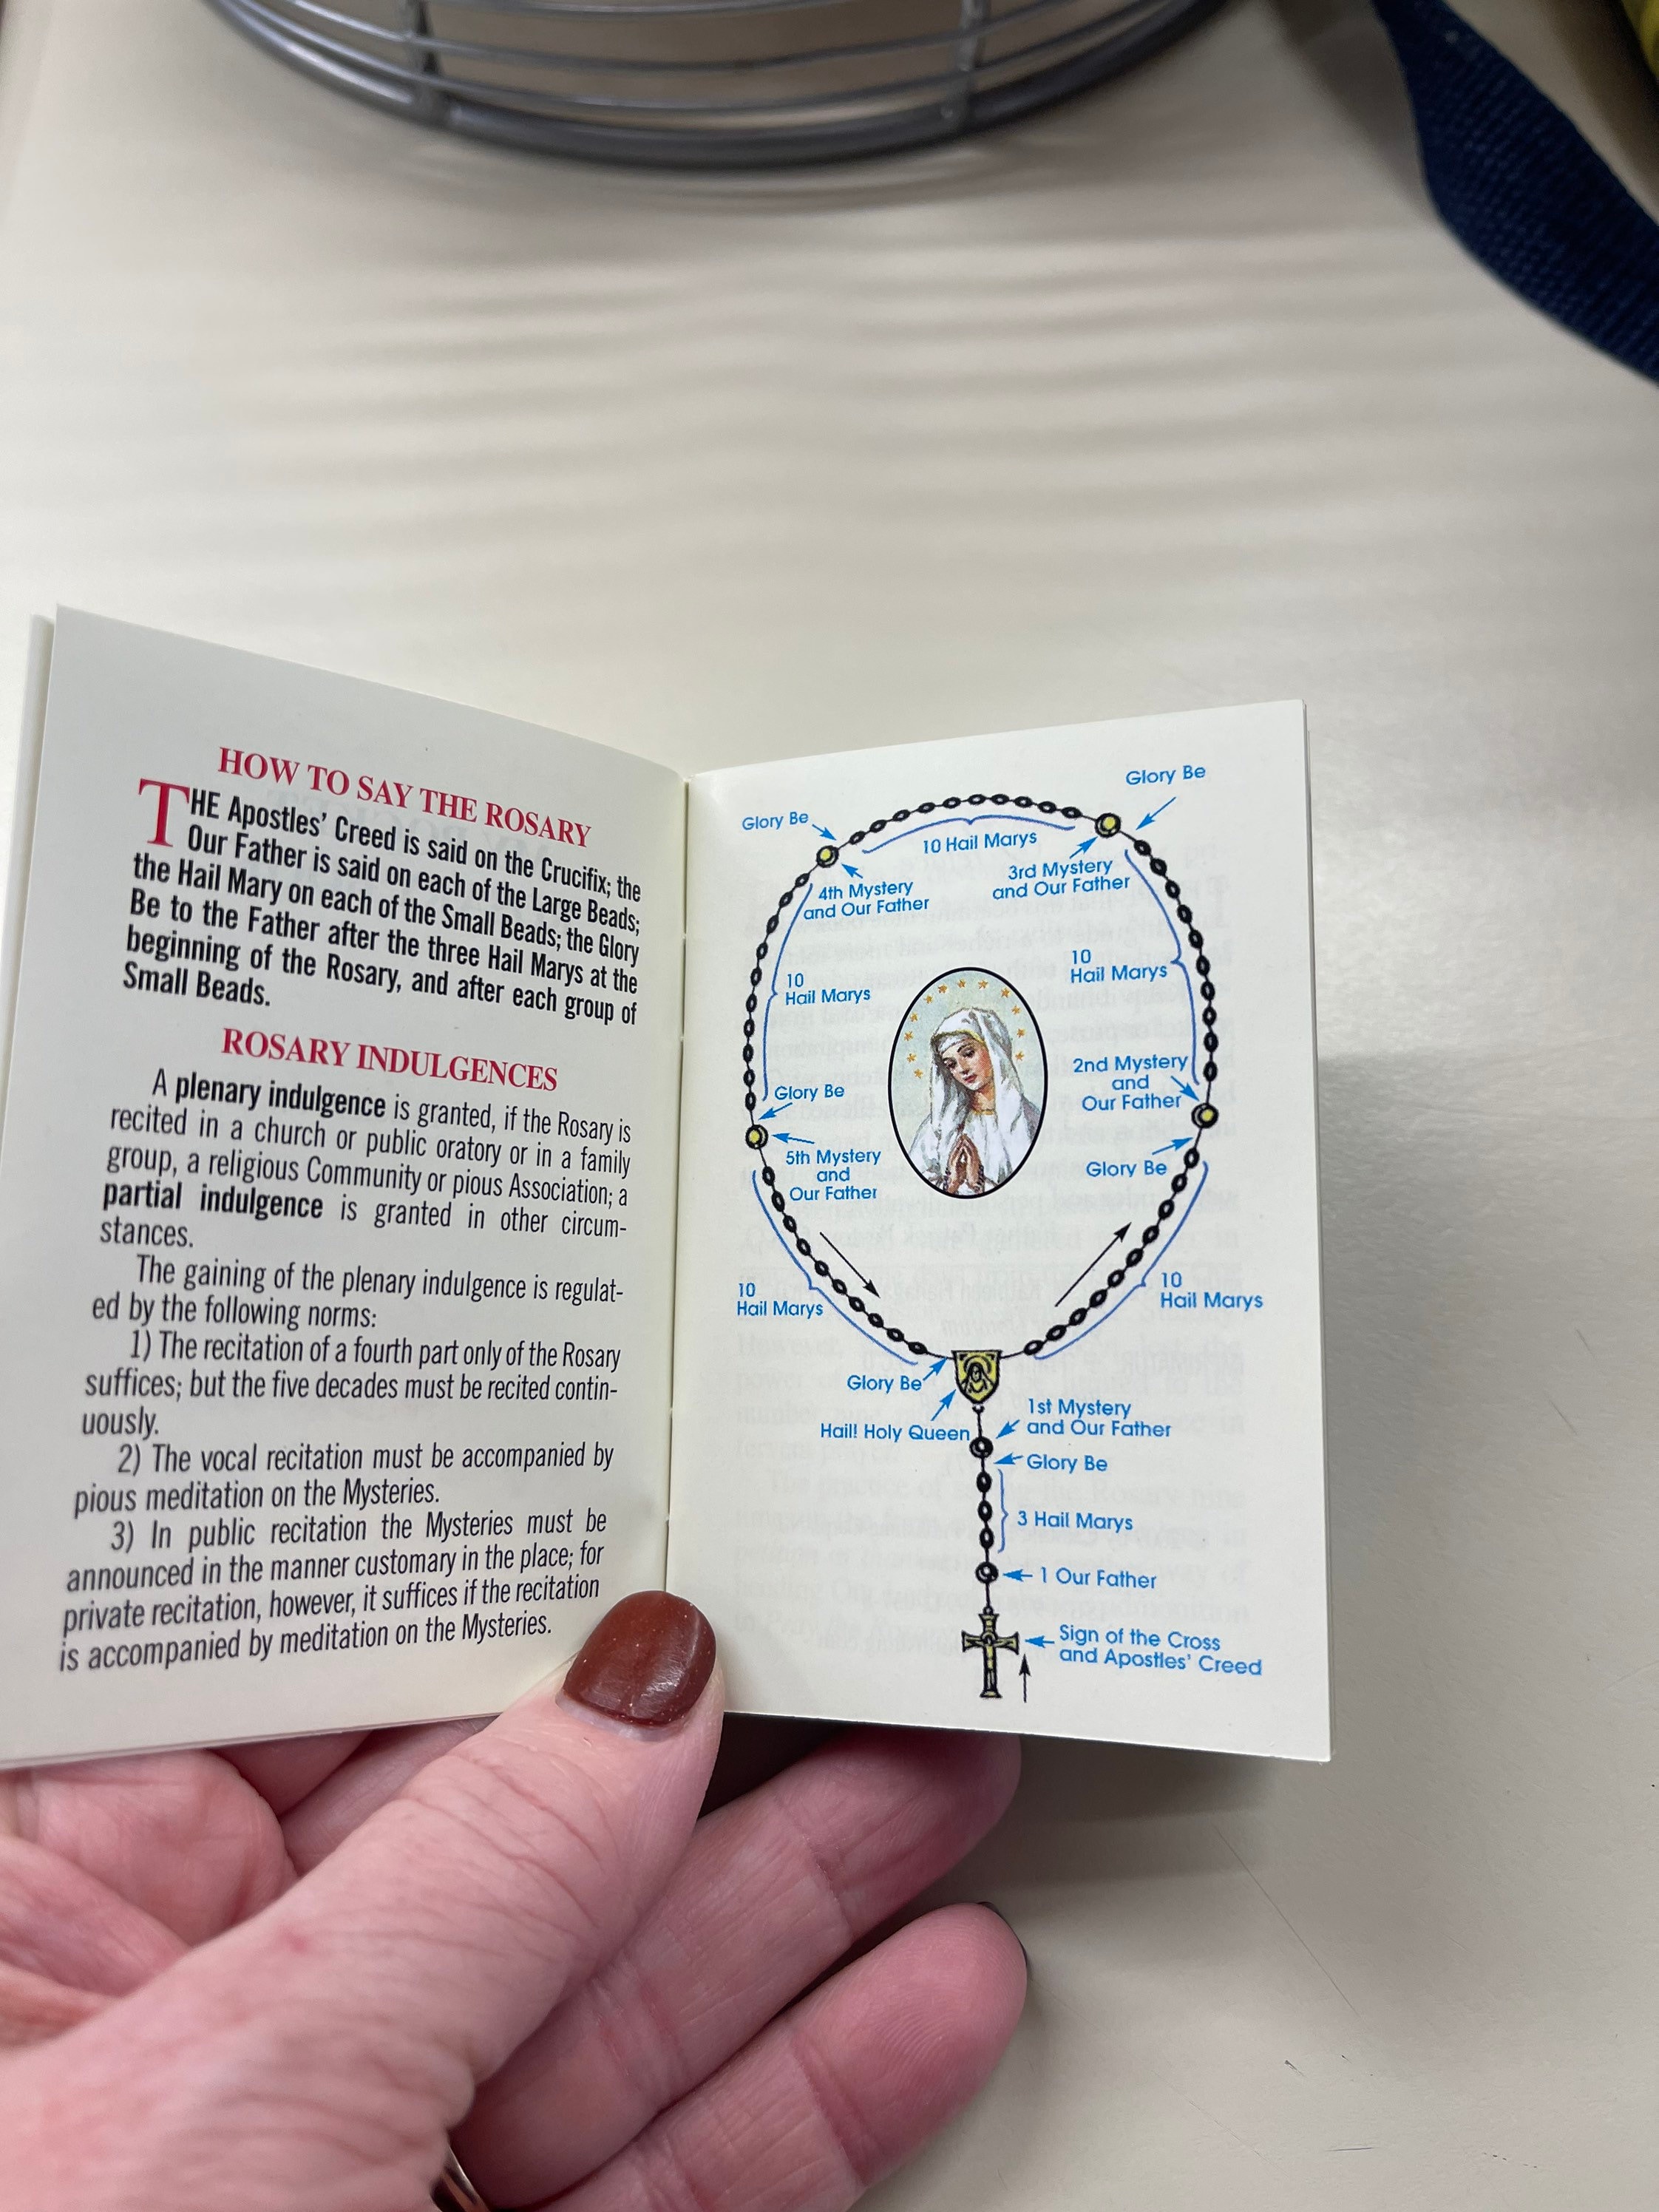 HOW TO SAY THE ROSARY
THE Apostles' Creed is said on the Crucifix; the
Our Father is said on each of the Large Beads;
the Hail Mary on each of the Small Beads; the Glory
Be to the Father after the three Hail Marys at the
beginning of the Rosary, and after each group of
Small Beads.
ROSARY INDULGENCES
A plenary indulgence is granted, if the Rosary is
recited in a church or public oratory or in a family
group, a religious Community or pious Association; a
partial indulgence is granted in other circum-
stances.
The gaining of the plenary indulgence is regulat-
ed by the following norms:
1) The recitation of a fourth part only of the Rosary
suffices; but the five decades must be recited contin-
uously.
2) The vocal recitation must be accompanied by
pious meditation on the Mysteries.
3) In public recitation the Mysteries must be
announced in the manner customary in the place; for
private recitation, however, it suffices if the recitation
is accompanied by meditation on the Mysteries.
Glory Be
Glory Be
10 Hail Marys
3rd Mystery
and Our Father
4th Mystery
and Our Father
10
Hail Marys
10
Hail Marys
2nd Mystery
and
Our Father
Glory Be
Glory Be
5th Mystery
and
Our Father
10
Hail Marys
10
Hail Marys
Glory Be
Hail! Holy Queen
1st Mystery
and Our Father
Glory Be
3 Hail Marys
1 Our Father
Sign of the Cross
and Apostles' Creed